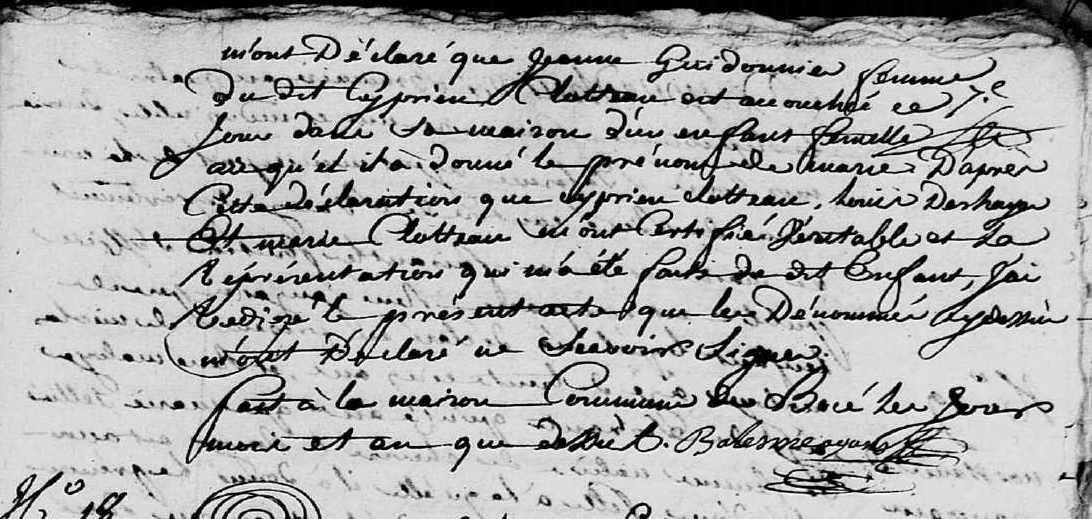 m'ont Déclaré que Jeanne Guidonnier femme
du dit Cyprien Clotteau est accouchée ce 7.e
jour dans sa maison d'un enfant femelle
au quel il à donné le prénom de marie D'après
Cette déclaration que cyprien clotteau, Louis Deshayes
Et marie Clotteau m'ont Certifié Véritable et La
Représentation qui m'a été faite du dit Enfant, J'ai
Redigé le présent acte que les Dénommés cydessus
m'ont Déclaré ne Scavoir Signer.
fait à la maison Commune de les Jour
mois et an que dessus.
N.o 18